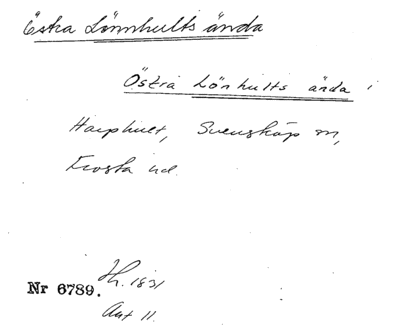 Östra Lönnhults ända
Östra Lönhults ända i
Harphult, Svensköp sn,
Frosta hd.
Nr 6789. Hr. 1831
Akt 11.